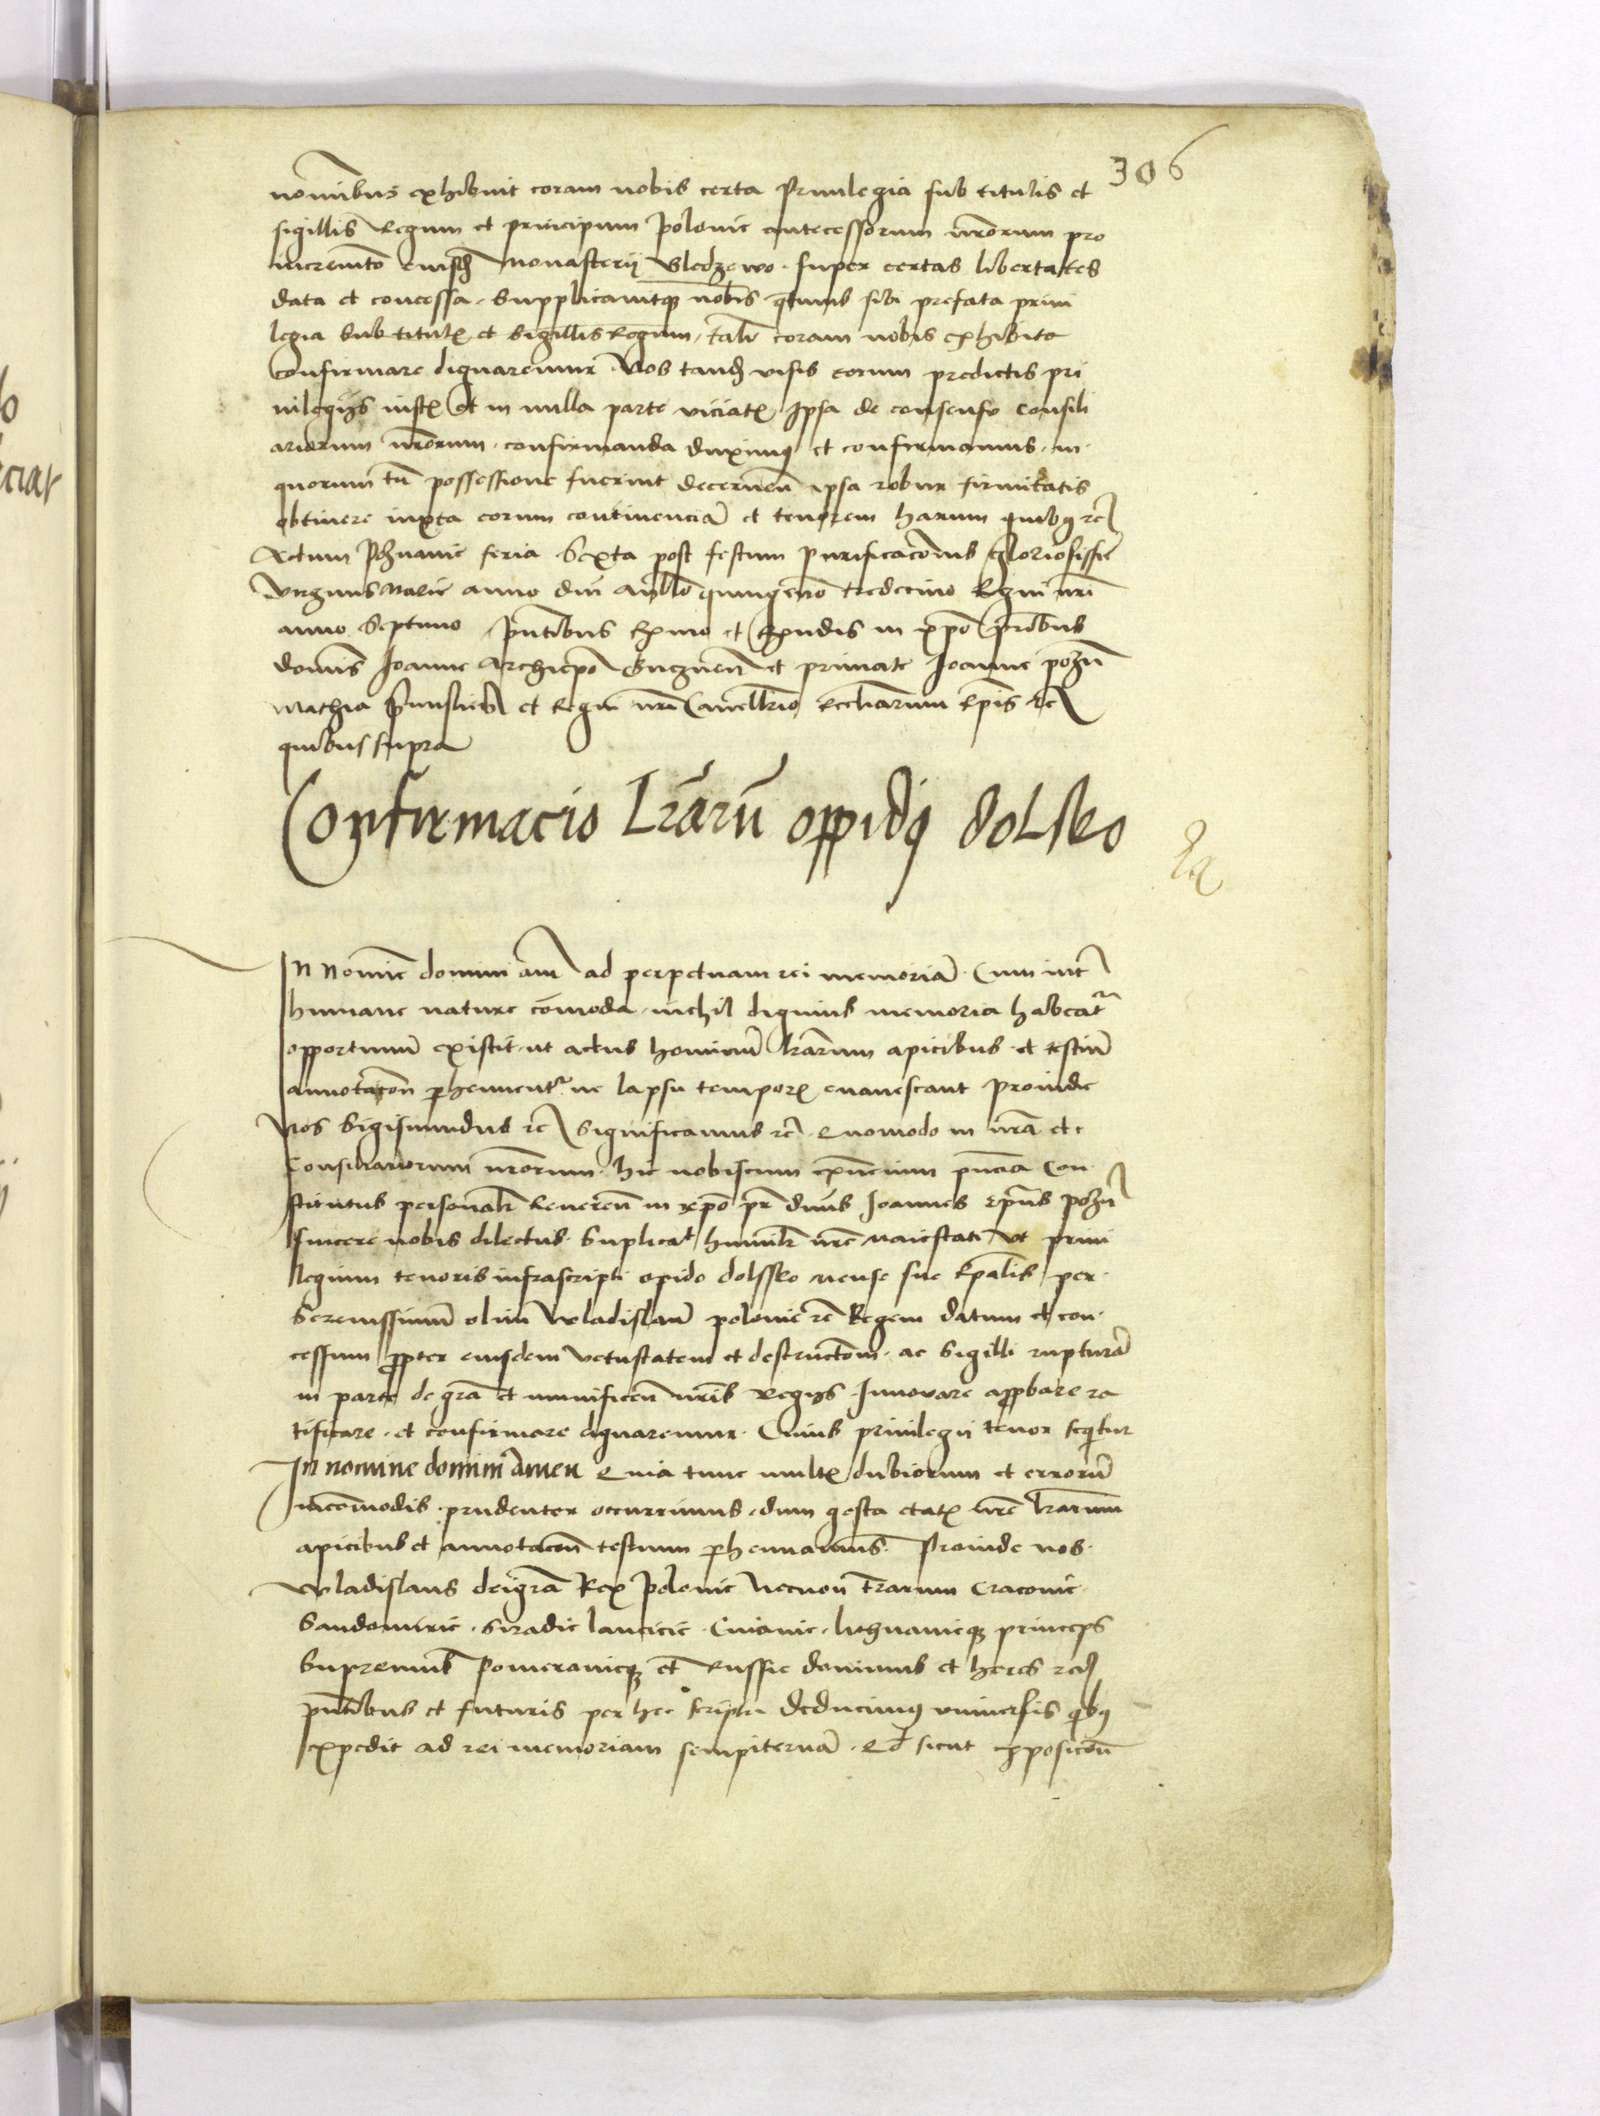 306
nominibus exhibuit coram nobis certa Privilegia sub titulis et
sigillis Regum et principum polonie antecessorum nrorum pro
incremto eiusd monasterii Bledzewo. super certas libertates
data et concessa. Supplicavitq nobis qtenus sibi prefata privi
legia sub titul et sigillis Regum, tali coram nobis exhibita
confirmare dignaremur. Nos tand visis eorum predictis pri
vilegiis iust et in nulla parte viciat Ipsa de consensu consili
ariorum nrorum. confirmanda duximus et confirmamus. in
quorum tn possessione fuerint decernen ipsa robur firmitatis
obtinere iuxta eorum continencia et tenorem harum quibus rc
Actum Poznanie feria Sexta post festum purificacionis gloriosissie
virginis Marie anno dni Millo quingeno tredecimo Regni nri
anno Septimo pntibus Rxmo et Rxndis in xpo pribus
dominis Joanne Archiepo Gneznen et primate Joanne pozn
Mathia premislien et Regni nri Cancellrio eccliarum Epis rc
quibus supra
Confirmacio Lrarum oppidi dolsko
In Nomine domini amen ad perpetuam rei memoria. Cum inter
humane nature comoda. nichil dignius memoria habeatr
opportunum existit. ut actus hominum lrarum apicibus. et testium
annotacon phennentr. ne lapsu tempor evanescant proinde
Nos Sigismundus rc Significamus rc. Quomodo in nra et
Consiliariorum nrorum. hic nobiscum existencium pncia Con
stitutus personali Reveren in xpo pr dnus Joannes epus Pozn
sincere nobis dilectus. Suplicat humili nre maiestati ut privi
legium tenoris infrascripti opido dolssko mense sue Epalis per
Serenissimum olim Wladislaum polonie rc Regem datum et con.
cessum propter eiusdem vetustatem et destructom. ac sigilli ruptura
in parte de gra et munificen nris Regiis Innovare approbare ra
tificare. et confirmare dignaremur. Cuius privilegii tenor sequitur
In nomine domini amen Quia tunc mult dubiorum et errorum
incomodis. prudenter occurrimus. dum gesta etat nre lrarum
apicibus et annotacon testium phennamus. Proinde nos.
Wladislaus dei gra Rex polonie Necnon Trarum Cracovie.
Sandomirie. Siradie lancicie. Cuiavie. lithuanieq princeps
Supremus Pomeranieq et Russie dominus et heres rc
pntibus et futuris per hec scripta deducimus universis qbus
expedit ad rei memoriam sempiterna. Qd sicut pposicon